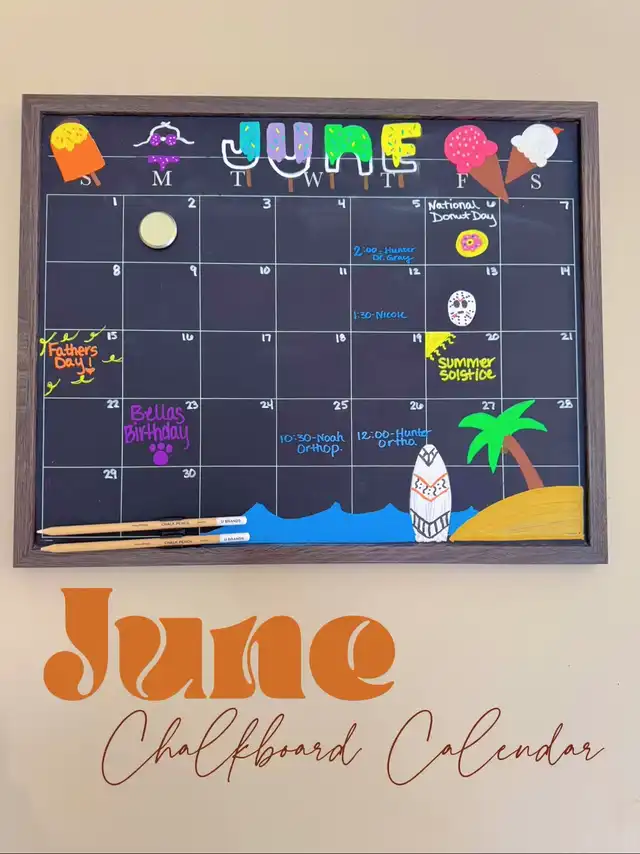 JUNE
S M T W T F S
1 2 3 4 5 6 7
National
Donut Day
2:00-Hunter
Dr. Gray
8 9 10 11 12 13 14
1:30-Nicole
15 16 17 18 19 20 21
Fathers
Day!
Summer
Solstice
22 23 24 25 26 27 28
Bellas
Birthday
10:30-Noah
Orthop.
12:00-Hunter
Ortho.
29 30
CHALK PENCIL U BRANDS
CHALK PENCIL U BRANDS
June
Chalkboard Calendar